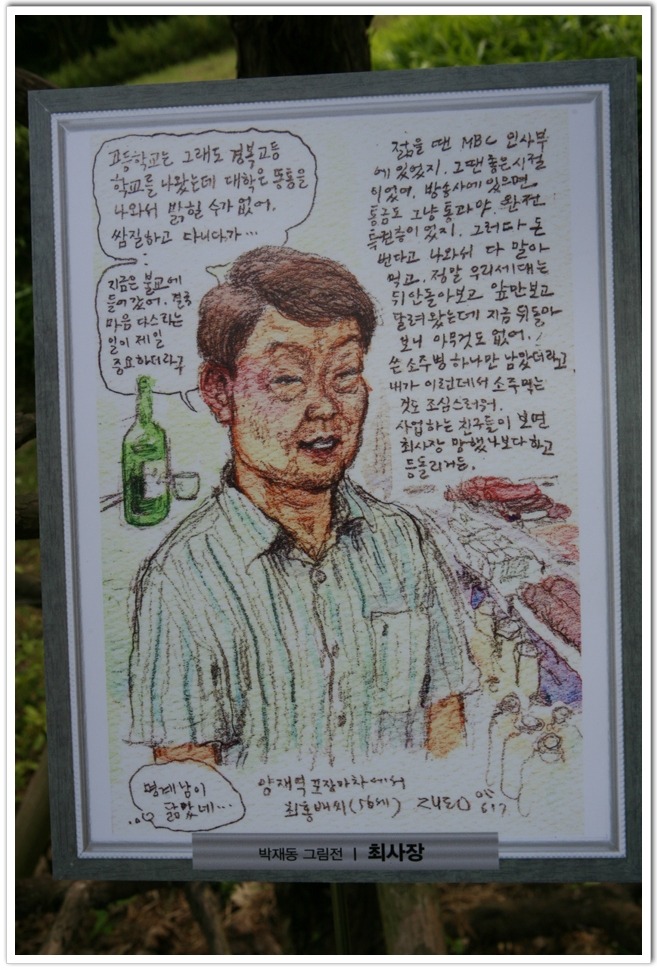 고등학교는 그래도 경복고등
학교를 나왔는데 대학은 똥통을
나와서 밝힐 수가 없어.
쌈질하고 다니다가…
지금은 불교에
들어갔어. 결국
마음 다스리는
일이 제일
중요하더라구
젊을 땐 MBC 인사부
에 있었지. 그땐 좋은시절
이었어. 방송사에 있으면
통금도 그냥 통과야. 완전
특권층이었지. 그러다 돈
번다고 나와서 다 말아
먹고. 정말 우리세대는
뒤안돌아보고 앞만보고
달려왔는데 지금 뒤돌아
보니 아무것도 없어.
쓴 소주병 하나만 남았더라고.
내가 이런데서 소주먹는
것도 조심스러워.
사업하는 친구들이 보면
최사장 망했나보다 하고
등돌리거든.
명계남이
닮았네…
양재역 포장마차에서
최홍배씨(56세)
박재동 그림전 | 최사장